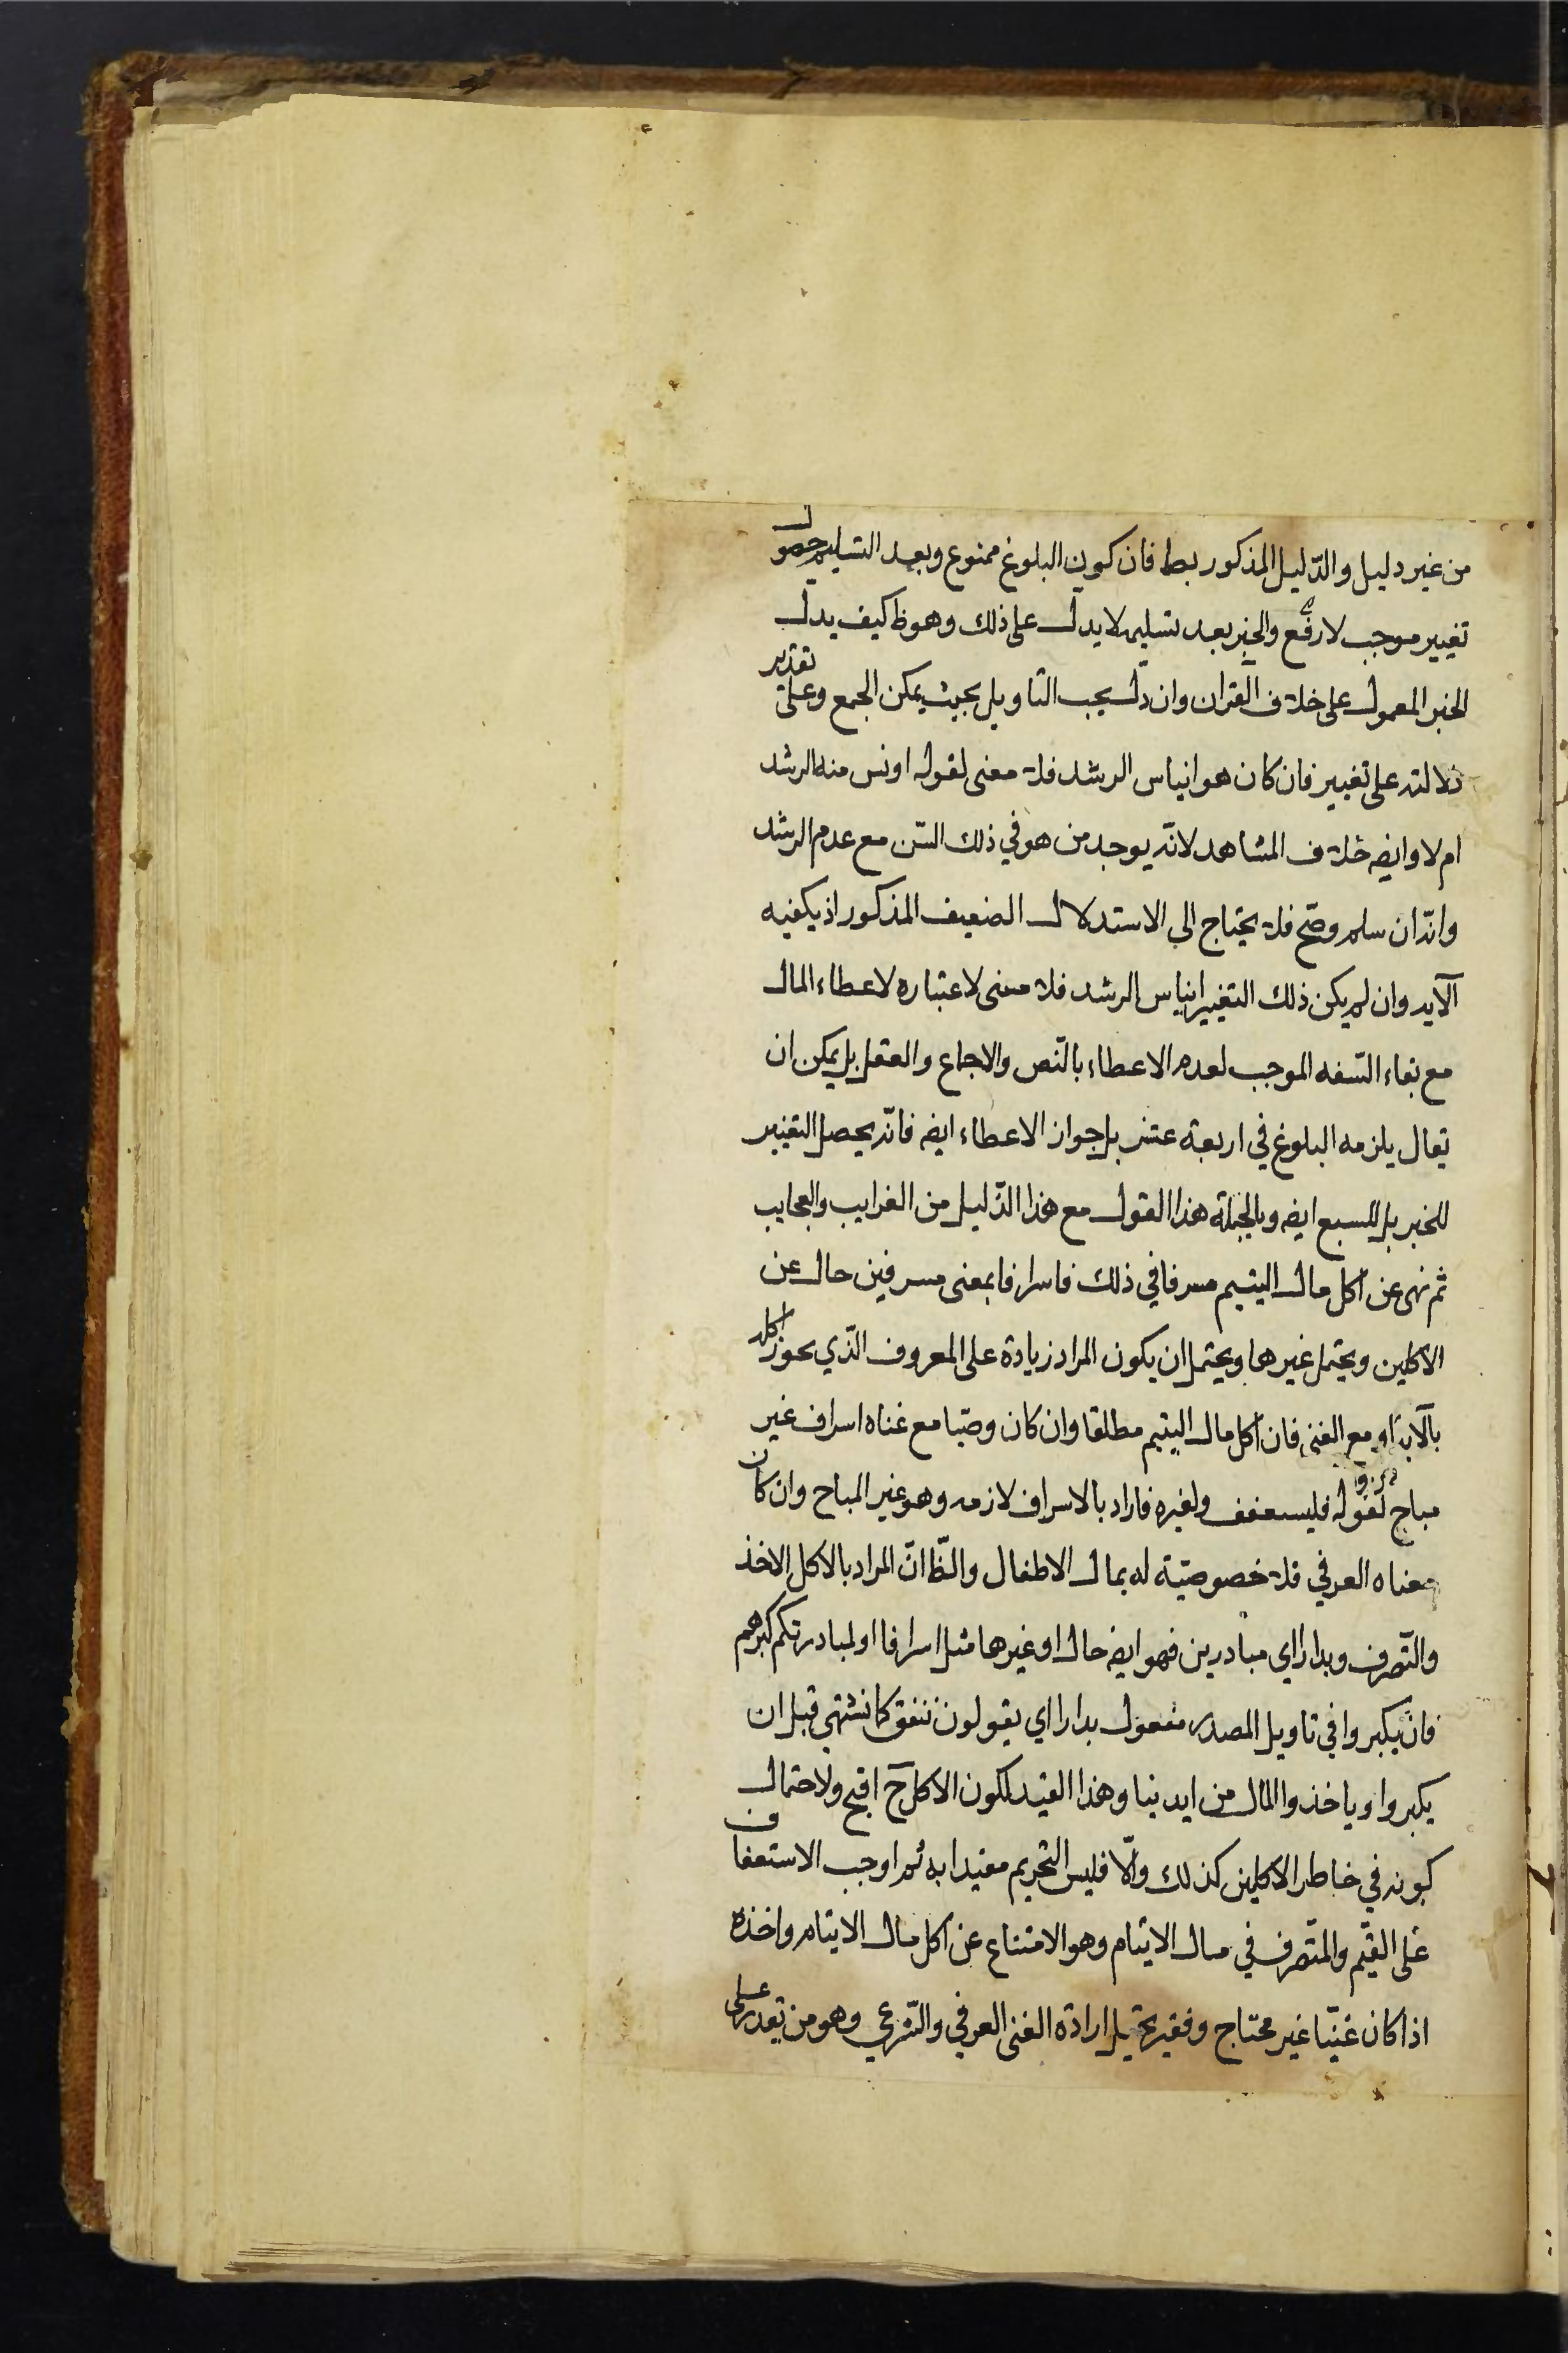 من غير دليل والدّليل المذكور بط فان كون البلوغ ممنوع وبعد التسليم حصول
تغيير موجب لا رفع والخبر بعد تسليمه لا يدل على ذلك وهو ظ كيف يدل
الخبر المعمول على خلاف القران وان دلّ يجب التاويل بحيث يمكن الجمع وعلى تقدير
دلالته على تغيير فان كان هو ايناس الرشد فلا معنى لقوله اونس منه الرشد
ام لا وايضه خلاف المشاهد لانّه يوجد من هو في ذلك السّن مع عدم الرشد
وانّه ان سلم وصحّ فلا يحتاج الي الاستدلال الضعيف المذكور اذ يكفيه
الآيه وان لم يكن ذلك التغيير ايناس الرشد فلا معنى لاعتباره لاعطاء المال
مع بقاء السّفه الموجب لعدم الاعطاء بالنّص والاجماع والعقل بل يمكن ان
يقال يلزمه البلوغ في اربعة عشر بل جواز الاعطاء ايضه فانّه يحصل التغيير
للخبر بل للسبع ايضه وبالجملة هذا القول مع هذا الدّليل من الغرايب والعجايب
ثم نهى عن اكل مال اليتيم مسرفا في ذلك فاسرافا بمعنى مسرفين حال عن
الاكلين ويحتمل غيرها ويحتمل ان يكون المراد زيادة على المعروف الّذي يجوز اكله
بالآية او مع الغنى فان اكل مال اليتيم مطلقا وان كان وصّيا مع غناه اسراف غير
مباح لقوله فليستعفف ولغيره فاراد بالاسراف لازمه وهو غير المباح وان كان
معناه العرفي فلا خصوصيّة له بمال الاطفال والظّ انّ المراد بالاكل الاخذ
والتّصرف وبدارا اي مبادرين فهو ايضه حال او غيرها مثل اسرافا او لمبادرتكم كبرهم
فان يكبروا في تاويل المصدر مفعول بدارا اي يقولون ننفق كما نشتهي قبل ان
يكبروا وياخذوا المال من ايدينا وهذا القيد لكون الاكل ح اقبح ولاحتمال
كونه في خاطر الاكلين كذلك والّا فليس التحريم مقيدا به ثم اوجب الاستعفاف
على القيّم والمتّصرف في مال الايتام وهو الامتناع عن اكل مال الايتام واخذه
اذا كان غنيّا غير محتاج وفقير يحتمل ارادة الغنى العرفي والشّرعي وهو من يقدر على